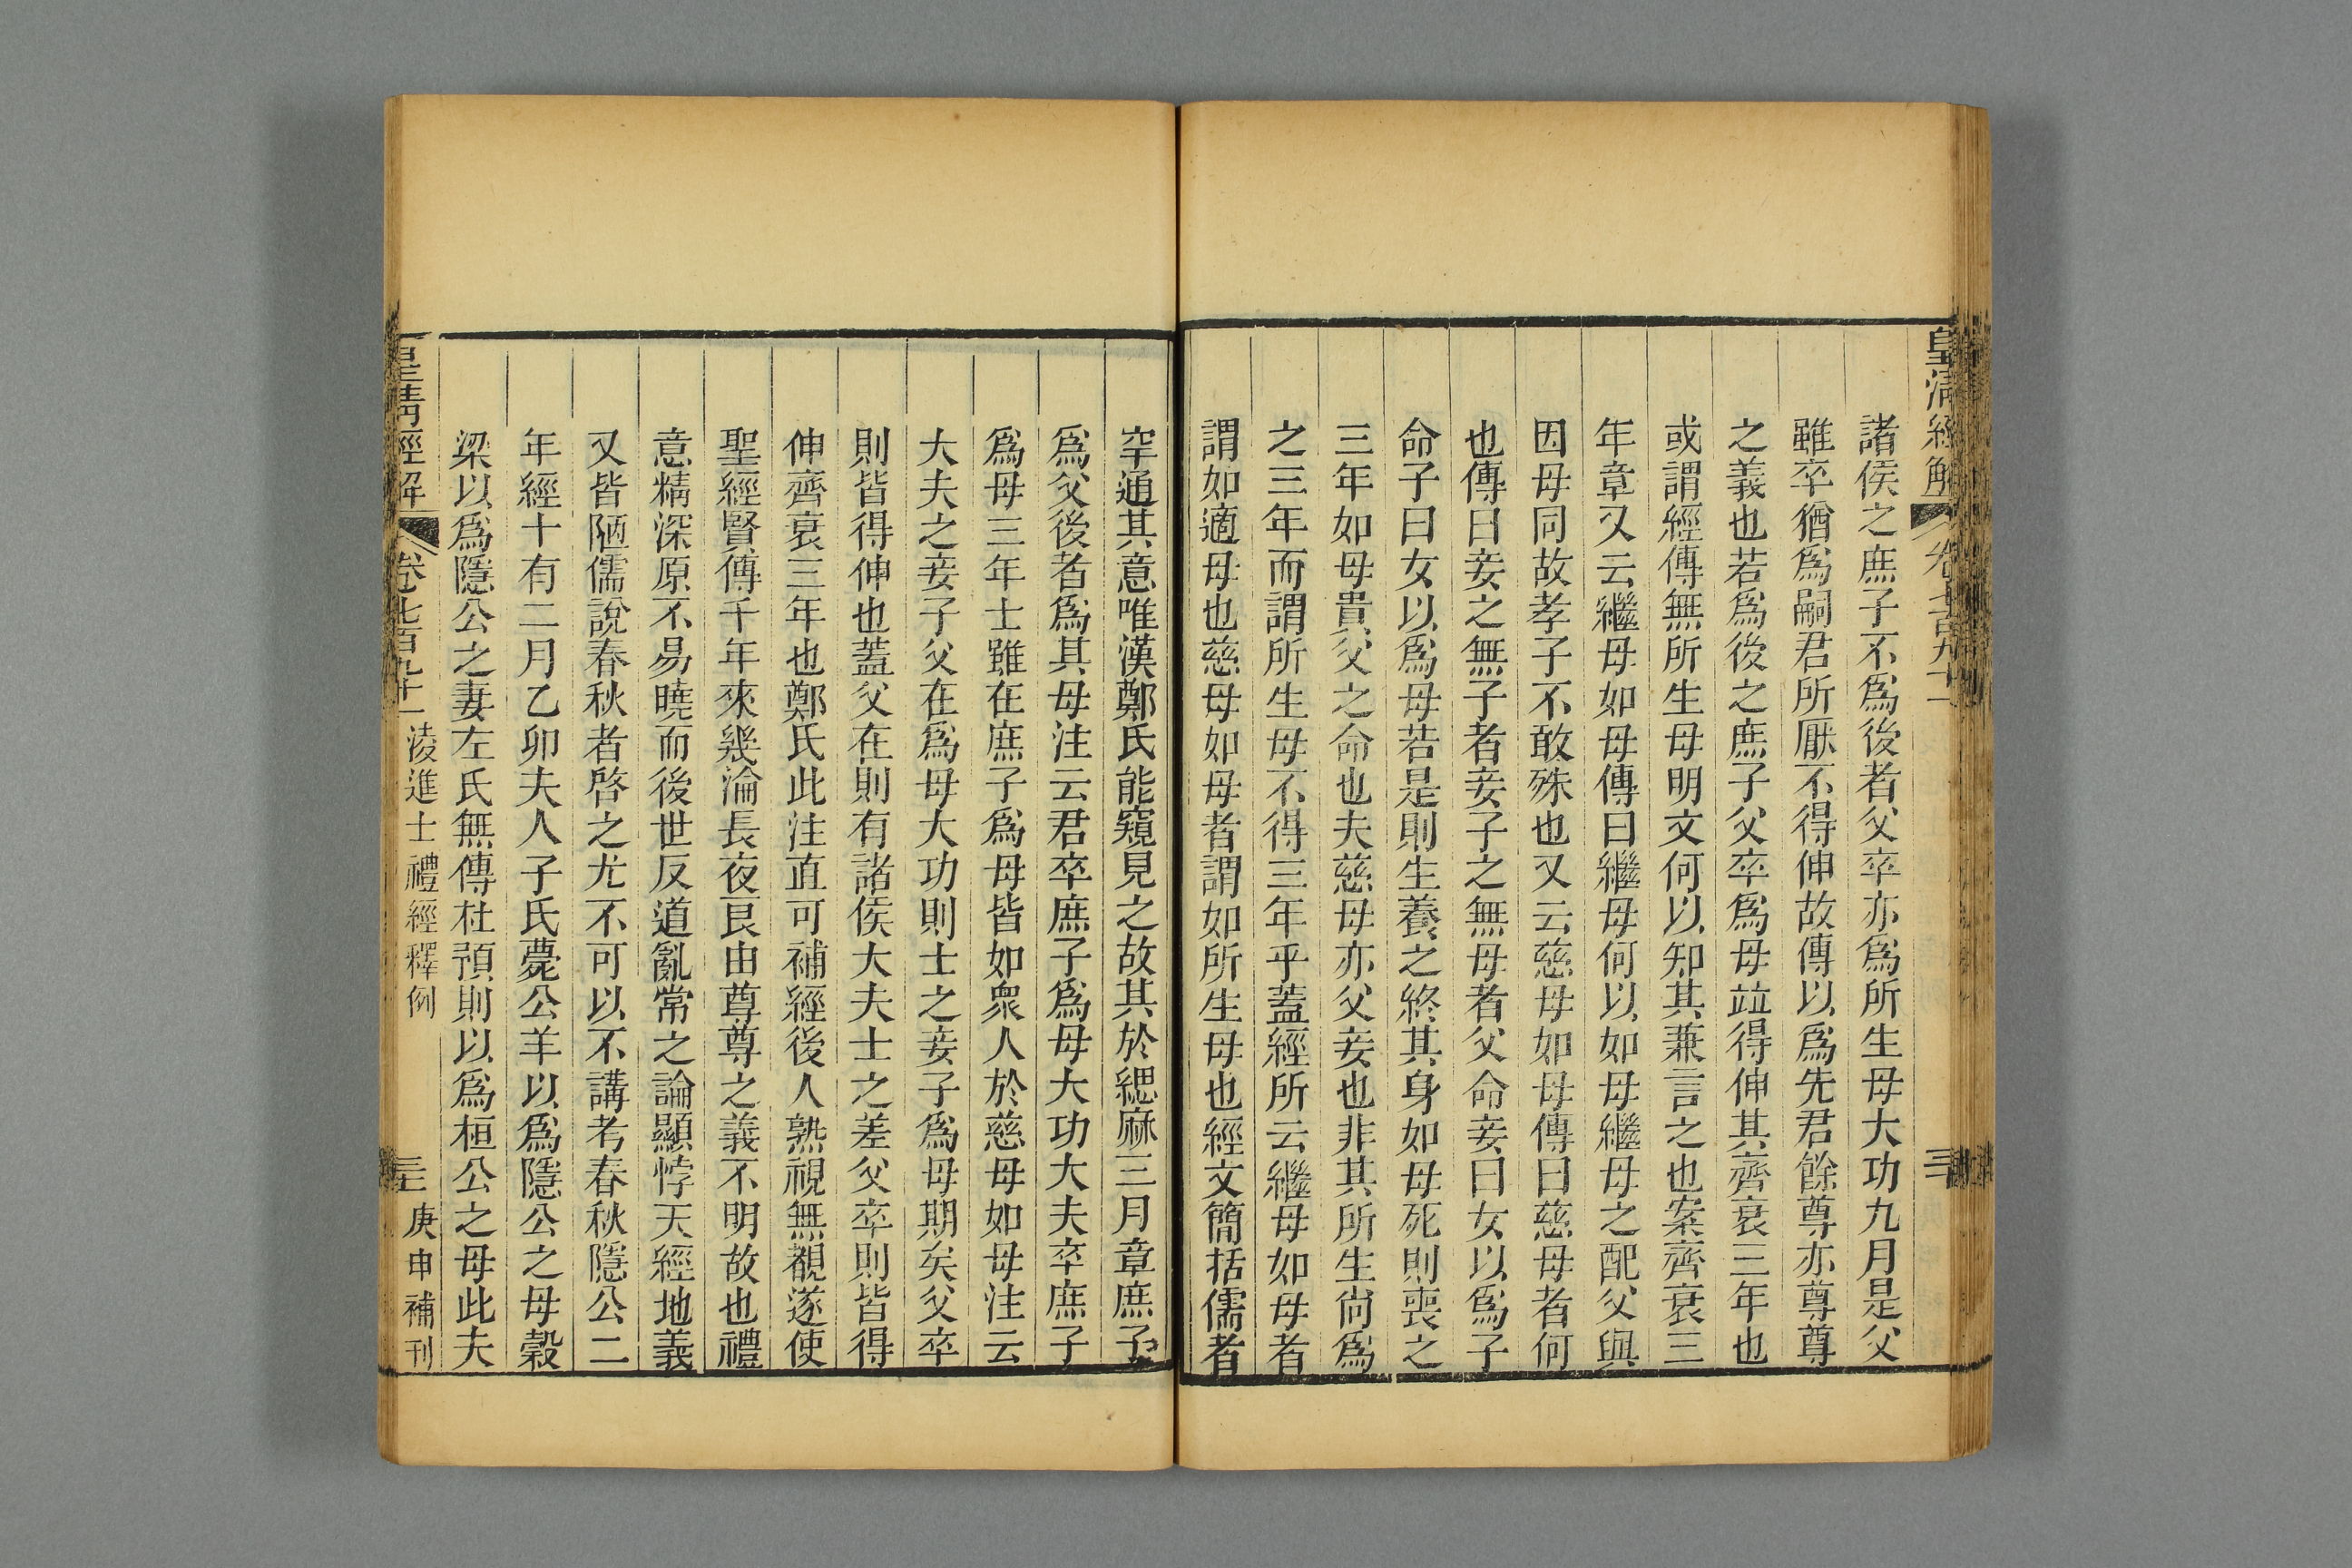 皇清經解 卷七百九十一
諸侯之庶子不爲後者父卒亦爲所生母大功九月是父
雖卒猶爲嗣君所厭不得伸故傳以爲先君餘尊亦尊尊
之義也若爲後之庶子父卒爲母竝得伸其齊衰三年也
或謂經傳無所生母明文何以知其兼言之也案齊衰三
年章又云繼母如母傳曰繼母何以如母繼母之配父與
因母同故孝子不敢殊也又云慈母如母傳曰慈母者何
也傳曰妾之無子者妾子之無母者父命妾曰女以爲子
命子曰女以爲母若是則生養之終其身如母死則喪之
三年如母貴父之命也夫慈母亦父妾也非其所生尙爲
之三年而謂所生母不得三年乎蓋經所云繼母如母者
謂如適母也慈母如母者謂如所生母也經文簡括儒者
罕通其意唯漢鄭氏能窺見之故其於緦麻三月章庶子
爲父後者爲其母注云君卒庶子爲母大功大夫卒庶子
爲母三年士雖在庶子爲母皆如衆人於慈母如母注云
大夫之妾子父在爲母大功則士之妾子爲母期矣父卒
則皆得伸也蓋父在則有諸侯大夫士之差父卒則皆得
伸齊衰三年也鄭氏此注直可補經後人熟視無覩遂使
聖經賢傳千年來幾淪長夜良由尊尊之義不明故也禮
意精深原不易曉而後世反道亂常之論顯悖天經地義
又皆陋儒說春秋者啓之尤不可以不講考春秋隱公二
年經十有二月乙卯夫人子氏薨公羊以爲隱公之母穀
梁以爲隱公之妻左氏無傳杜預則以爲桓公之母此夫
皇清經解 卷七百九十一 淩進士禮經釋例 庚申補刊